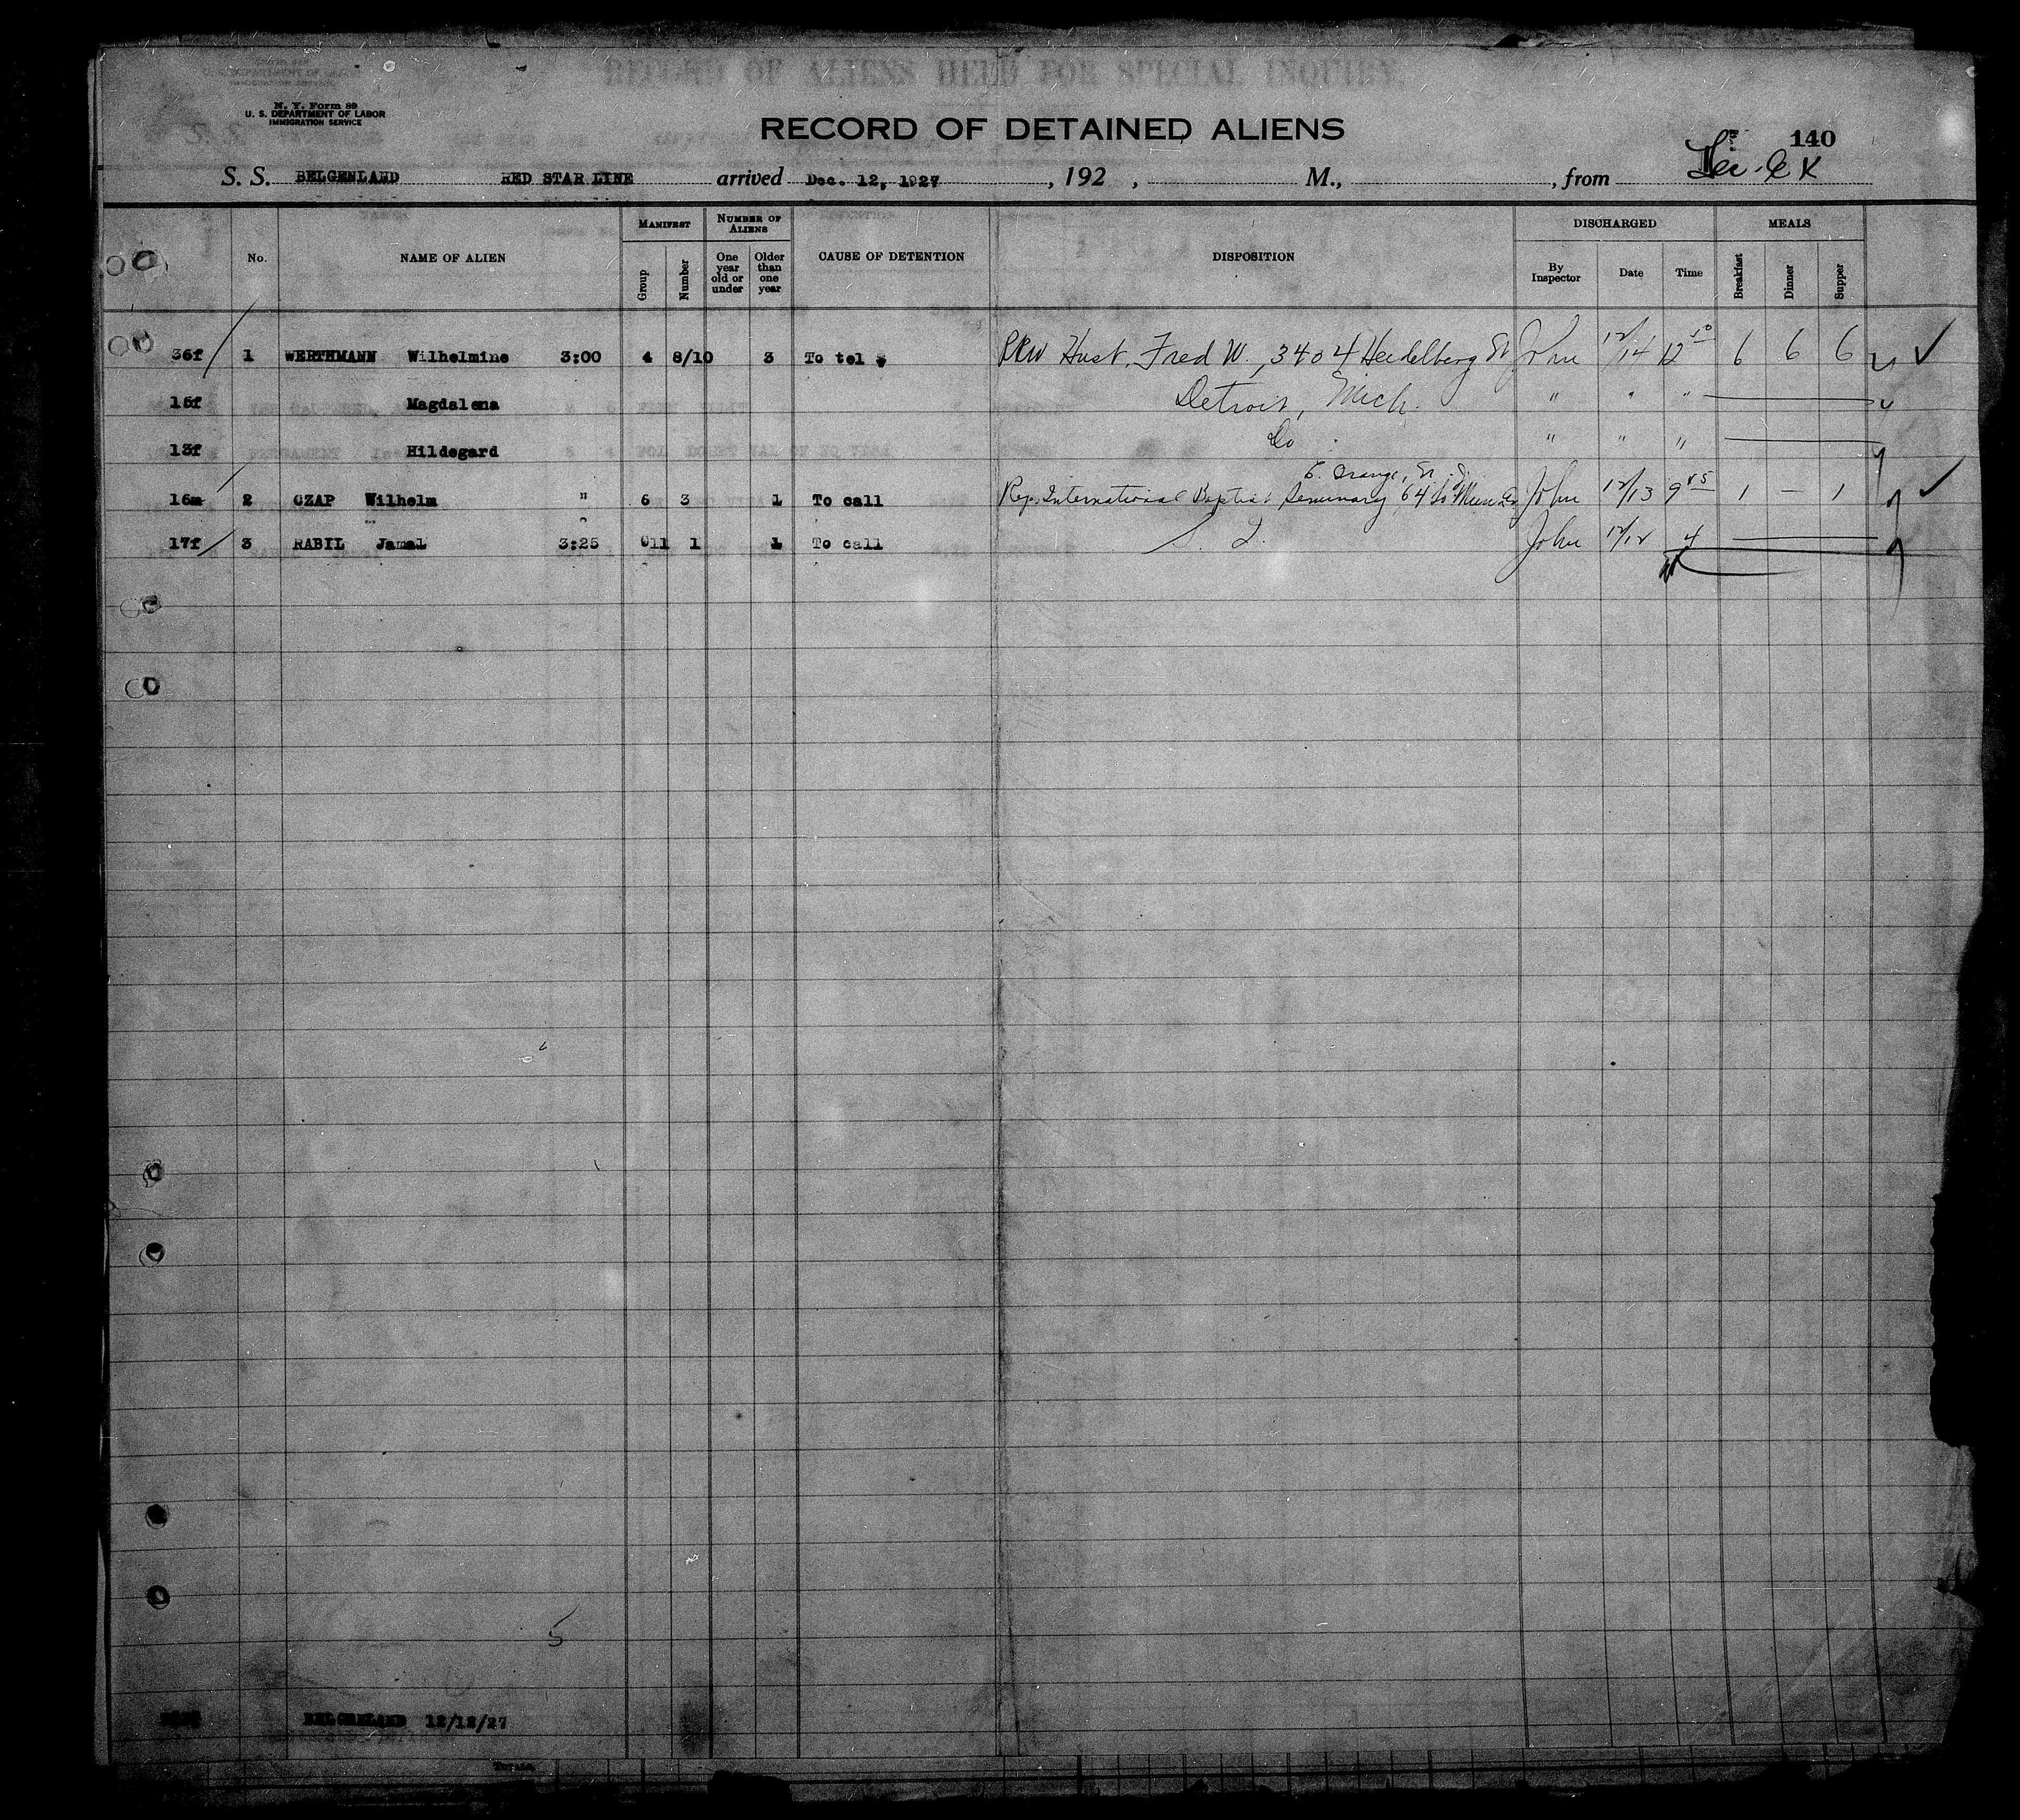 RECORD OF ALIENS HELD FOR SPECIAL INQUIRY
N. Y. Form 89
U. S. DEPARTMENT OF LABOR
IMMIGRATION SERVICE
RECORD OF DETAINED ALIENS
140
S. S. BELGENLAND RED STAR LINE arrived Dec. 12, 1927, 192 , M., , from
No. NAME OF ALIEN MANIFEST Group Number NUMBER OF ALIENS One year old or under Older than one year CAUSE OF DETENTION DISPOSITION DISCHARGED By Inspector Date Time MEALS Breakfast Dinner Supper
36f 1 WERTHMANN Wilhelmine 3:00 4 8/10 3 To tel $ Husb. Fred W., 3404 Heidelberg St John 12/14 12 10 6 6 6 ✓
15f Magdalena Detroit, Mich. " " "
13f Hildegard Do " " "
E. Orange, N. J.
16m 2 CZAP Wilhelm " 6 3 1 To call Rep. International Baptist Seminary, 64 John 12/13 9 45 1 — 1 ✓
17f 3 RABIL Jamal 3:25 11 1 1 To call John 12/12 4
5
BELGENLAND 12/12/27
Totals